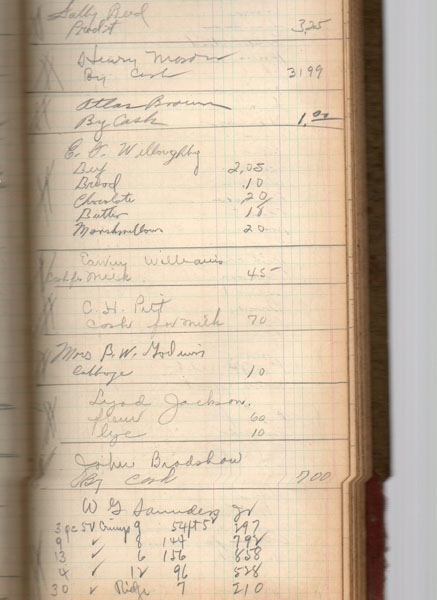 Sally Reid
Credit 3,25
Henry Moore
By Cash 3199
Atlas Brown
By Cash 1.00
E. J. Willoughby
Beef 2,05
Bread .10
Chocolate 20
Butter 18
Marshmellow 20
Williams
Cash for milk 45
C. H. Pitt
Cash for milk 70
Mrs B. W. Godwin
Cabbage 10
Lyod Jackson.
flour 60
lye 10
John Bradshaw
By Cash 700
W G Saunders Jr
3 pc 5V Crimp 9 54 ft 5 297
9 ✓ 8 144 792
13 ✓ 6 156 858
4 ✓ 12 96 528
30 ✓ Ridge 7 210